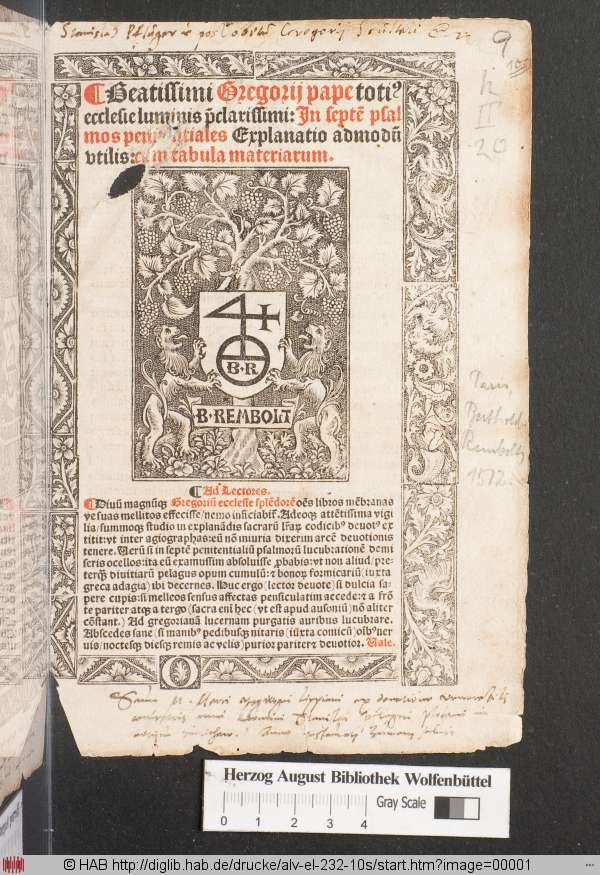 9
h
II
20
¶Beatissimi Gregorij pape toti⁹
ecclesie luminis p̄clarissimi: In septē psal
mos penitentiales Explanatio admodū
vtilis: cum tabula materiarum.
B·R
B·REMBOLT
Paris,
Berthold
Rembolt,
1512.
¶Ad Lectores.
¶Diuū magnūq; Gregoriū ecclesie splēdorē oēs libros mēbranas
ve suas mellitos effecisse/nemo inficiabit̄. Adeoq; attētissima vigi
lia/summoq; studio in explanādis sacrarū lr̄aꝝ codicib⁹ deuot⁹ ex
titit: vt inter agiographas: eū nō iniuria dixerim arcē deuotionis
tenere. Uerū si in septē penitentialiū psalmorū lucubrationē demi
seris ocellos: ita eū examussim absoluisse ꝓbabis: vt non aliud/pre
terq̄ʒ diuitiarū pelagus opum cumulū: ⁊ bonoꝝ formicariū (iuxta
greca adagia) ibi decernes. Huc ergo lector deuote/ si dulcia sa
pere cupis: si melleos sensus affectas pensiculatim accede: ⁊ a frō
te pariter atq; a tergo (sacra eni hec (vt est apud ausoniū) nō aliter
cōstant.) Ad gregorianā lucernam purgatis auribus lucubrare.
Abscedes sane (si manib⁹ pedibusq; nitaris (iuxta comicū) oīb⁹ ner
uis/noctesq; diesq; remis ac velis) purior pariter ⁊ deuotior. Uale.
Herzog August Bibliothek Wolfenbüttel
0 1 2 3 4
Gray Scale
© HAB http://diglib.hab.de/drucke/alv-el-232-10s/start.htm?image=00001